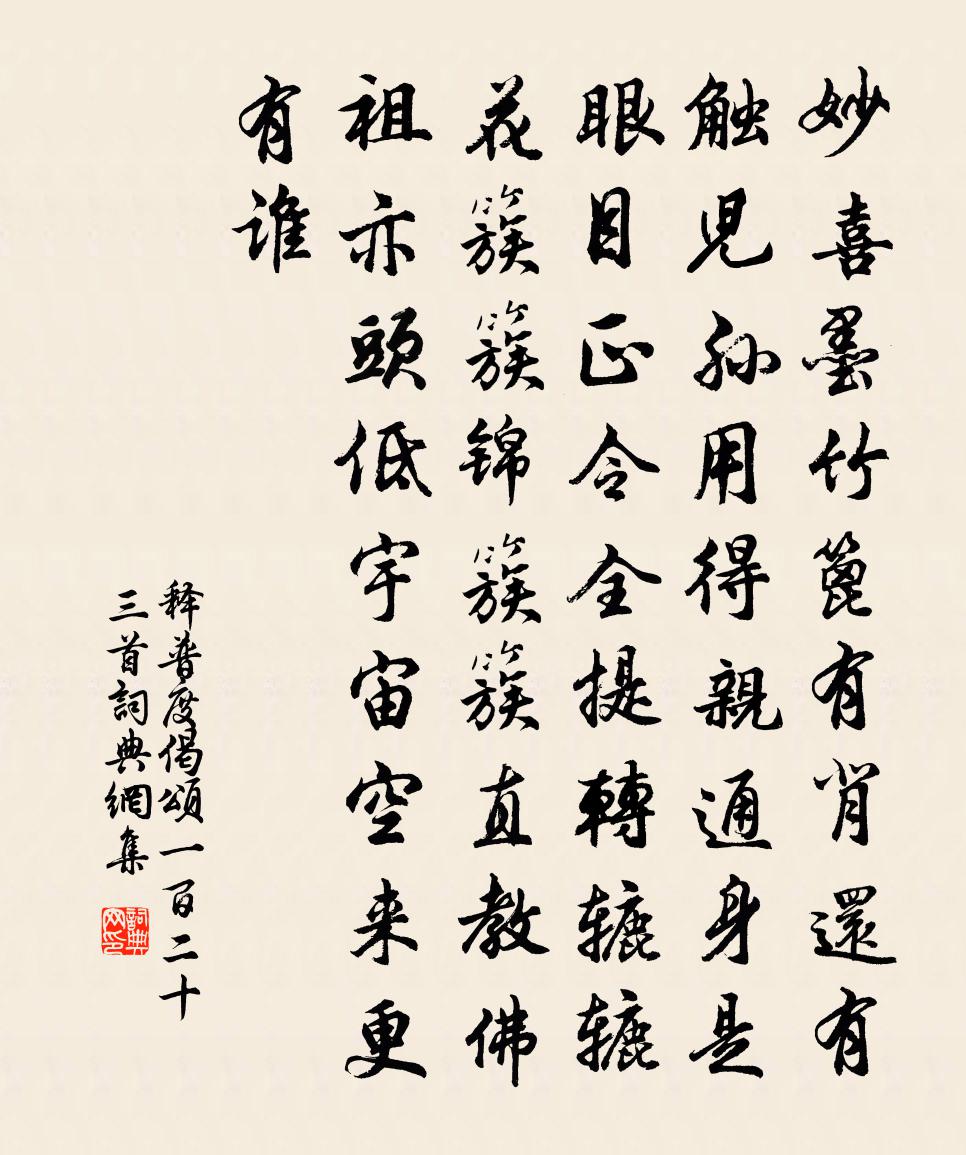 妙喜墨竹篦有背還有
触児孙用得親通身是
眼目正令全提轉辘辘
花簇簇錦簇簇直教佛
祖亦頭低宇宙空来更
有誰
释普度偈頌一百二十
三首詞典網集
詞典网印